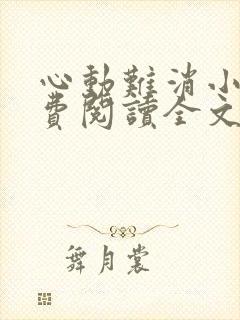 心動難消小
費閱讀全文
舞月裳